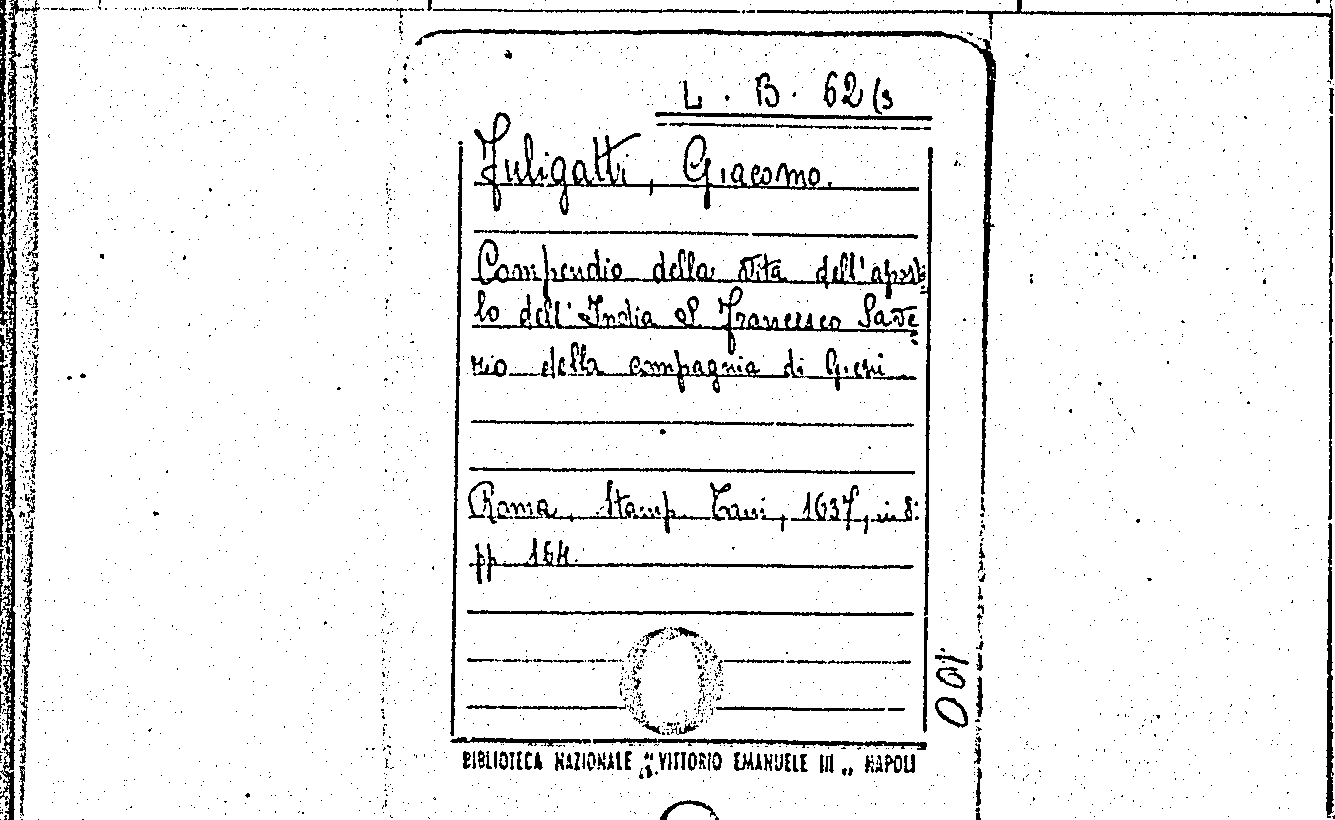 L. B. 62 (3
Fuligatti, Giacomo.
Compendio della vita dell'aposto
lo dell'India S. Francesco Save
rio della compagnia di Giesi
Roma, Stamp. Cavi, 1637, in 8.
pp. 164.
100
BIBLIOTECA NAZIONALE "VITTORIO EMANUELE III „ NAPOLI